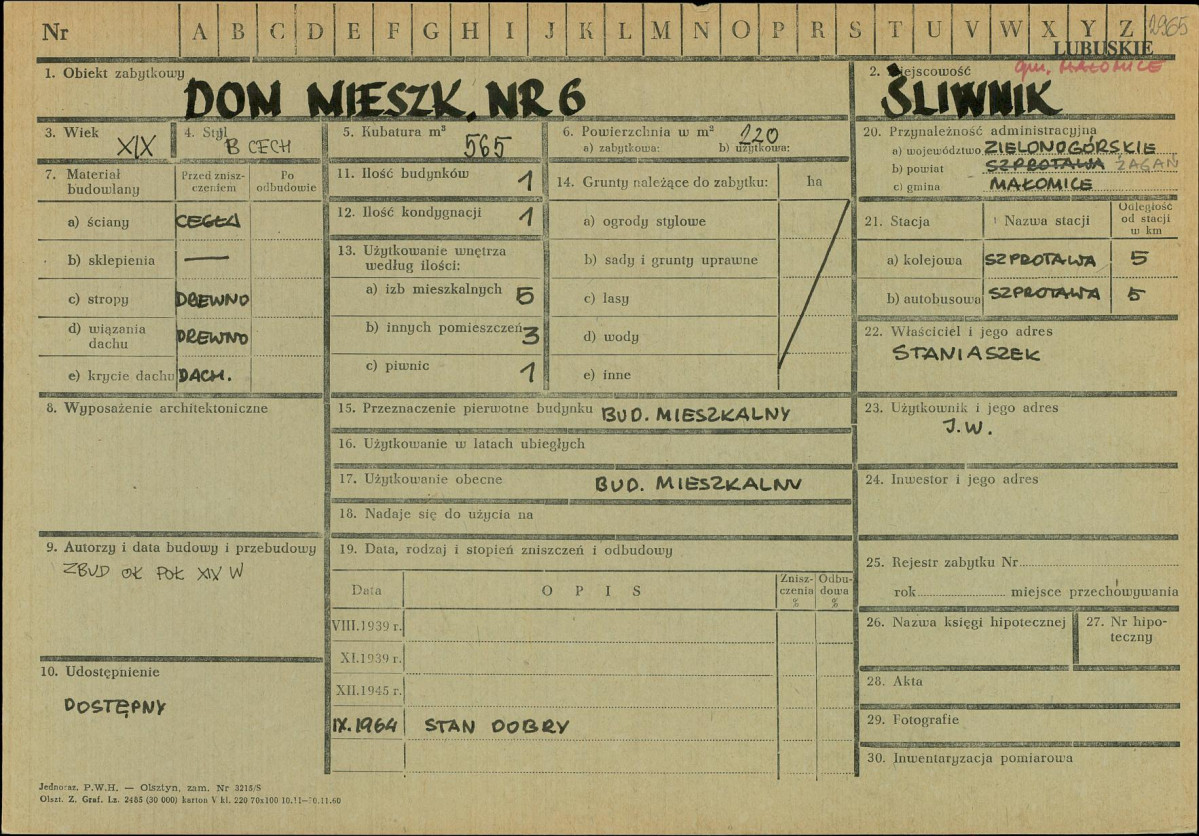 Nr A B C D E F G H I J K L M N O P R S T U V W X Y Z 2965
LUBUSKIE
gm. MAŁOMICE
1. Obiekt zabytkowy
DOM MIESZK. NR 6
2. Miejscowość
ŚLIWNIK
3. Wiek
XIX
4. Styl
B CECH
5. Kubatura m³
565
6. Powierzchnia w m²
120
a) zabytkowa: b) użytkowa:
7. Materiał budowlany
Przed zniszczeniem
Po odbudowie
a) ściany CEGŁA
b) sklepienia —
c) stropy DREWNO
d) wiązania dachu DREWNO
e) krycie dachu DACH.
8. Wyposażenie architektoniczne
9. Autorzy i data budowy i przebudowy
ZBUD OK POŁ XIX W
10. Udostępnienie
DOSTĘPNY
11. Ilość budynków 1
12. Ilość kondygnacji 1
13. Użytkowanie wnętrza według ilości:
a) izb mieszkalnych 5
b) innych pomieszczeń 3
c) piwnic 1
14. Grunty należące do zabytku: ha
a) ogrody stylowe
b) sady i grunty uprawne
c) lasy
d) wody
e) inne
15. Przeznaczenie pierwotne budynku BUD. MIESZKALNY
16. Użytkowanie w latach ubiegłych
17. Użytkowanie obecne BUD. MIESZKALNY
18. Nadaje się do użycia na
19. Data, rodzaj i stopień zniszczeń i odbudowy
Data O P I S Zniszczenia % Odbudowa %
VIII.1939 r.
XI.1939 r.
XII.1945 r.
IX.1964 STAN DOBRY
20. Przynależność administracyjna
a) województwo ZIELONOGÓRSKIE
b) powiat SZPROTAWA ŻAGAŃ
c) gmina MAŁOMICE
21. Stacja Nazwa stacji Odległość od stacji w km
a) kolejowa SZPROTAWA 5
b) autobusowa SZPROTAWA 5
22. Właściciel i jego adres
STANIASZEK
23. Użytkownik i jego adres
J.W.
24. Inwestor i jego adres
25. Rejestr zabytku Nr
rok miejsce przechowywania
26. Nazwa księgi hipotecznej
27. Nr hipoteczny
28. Akta
29. Fotografie
30. Inwentaryzacja pomiarowa
Jednoraz. P.W.H. — Olsztyn, zam. Nr 3215/S
Olszt. Z. Graf. Lz. 2485 (30 000) karton V kl. 220 70x100 10.11—10.11.60